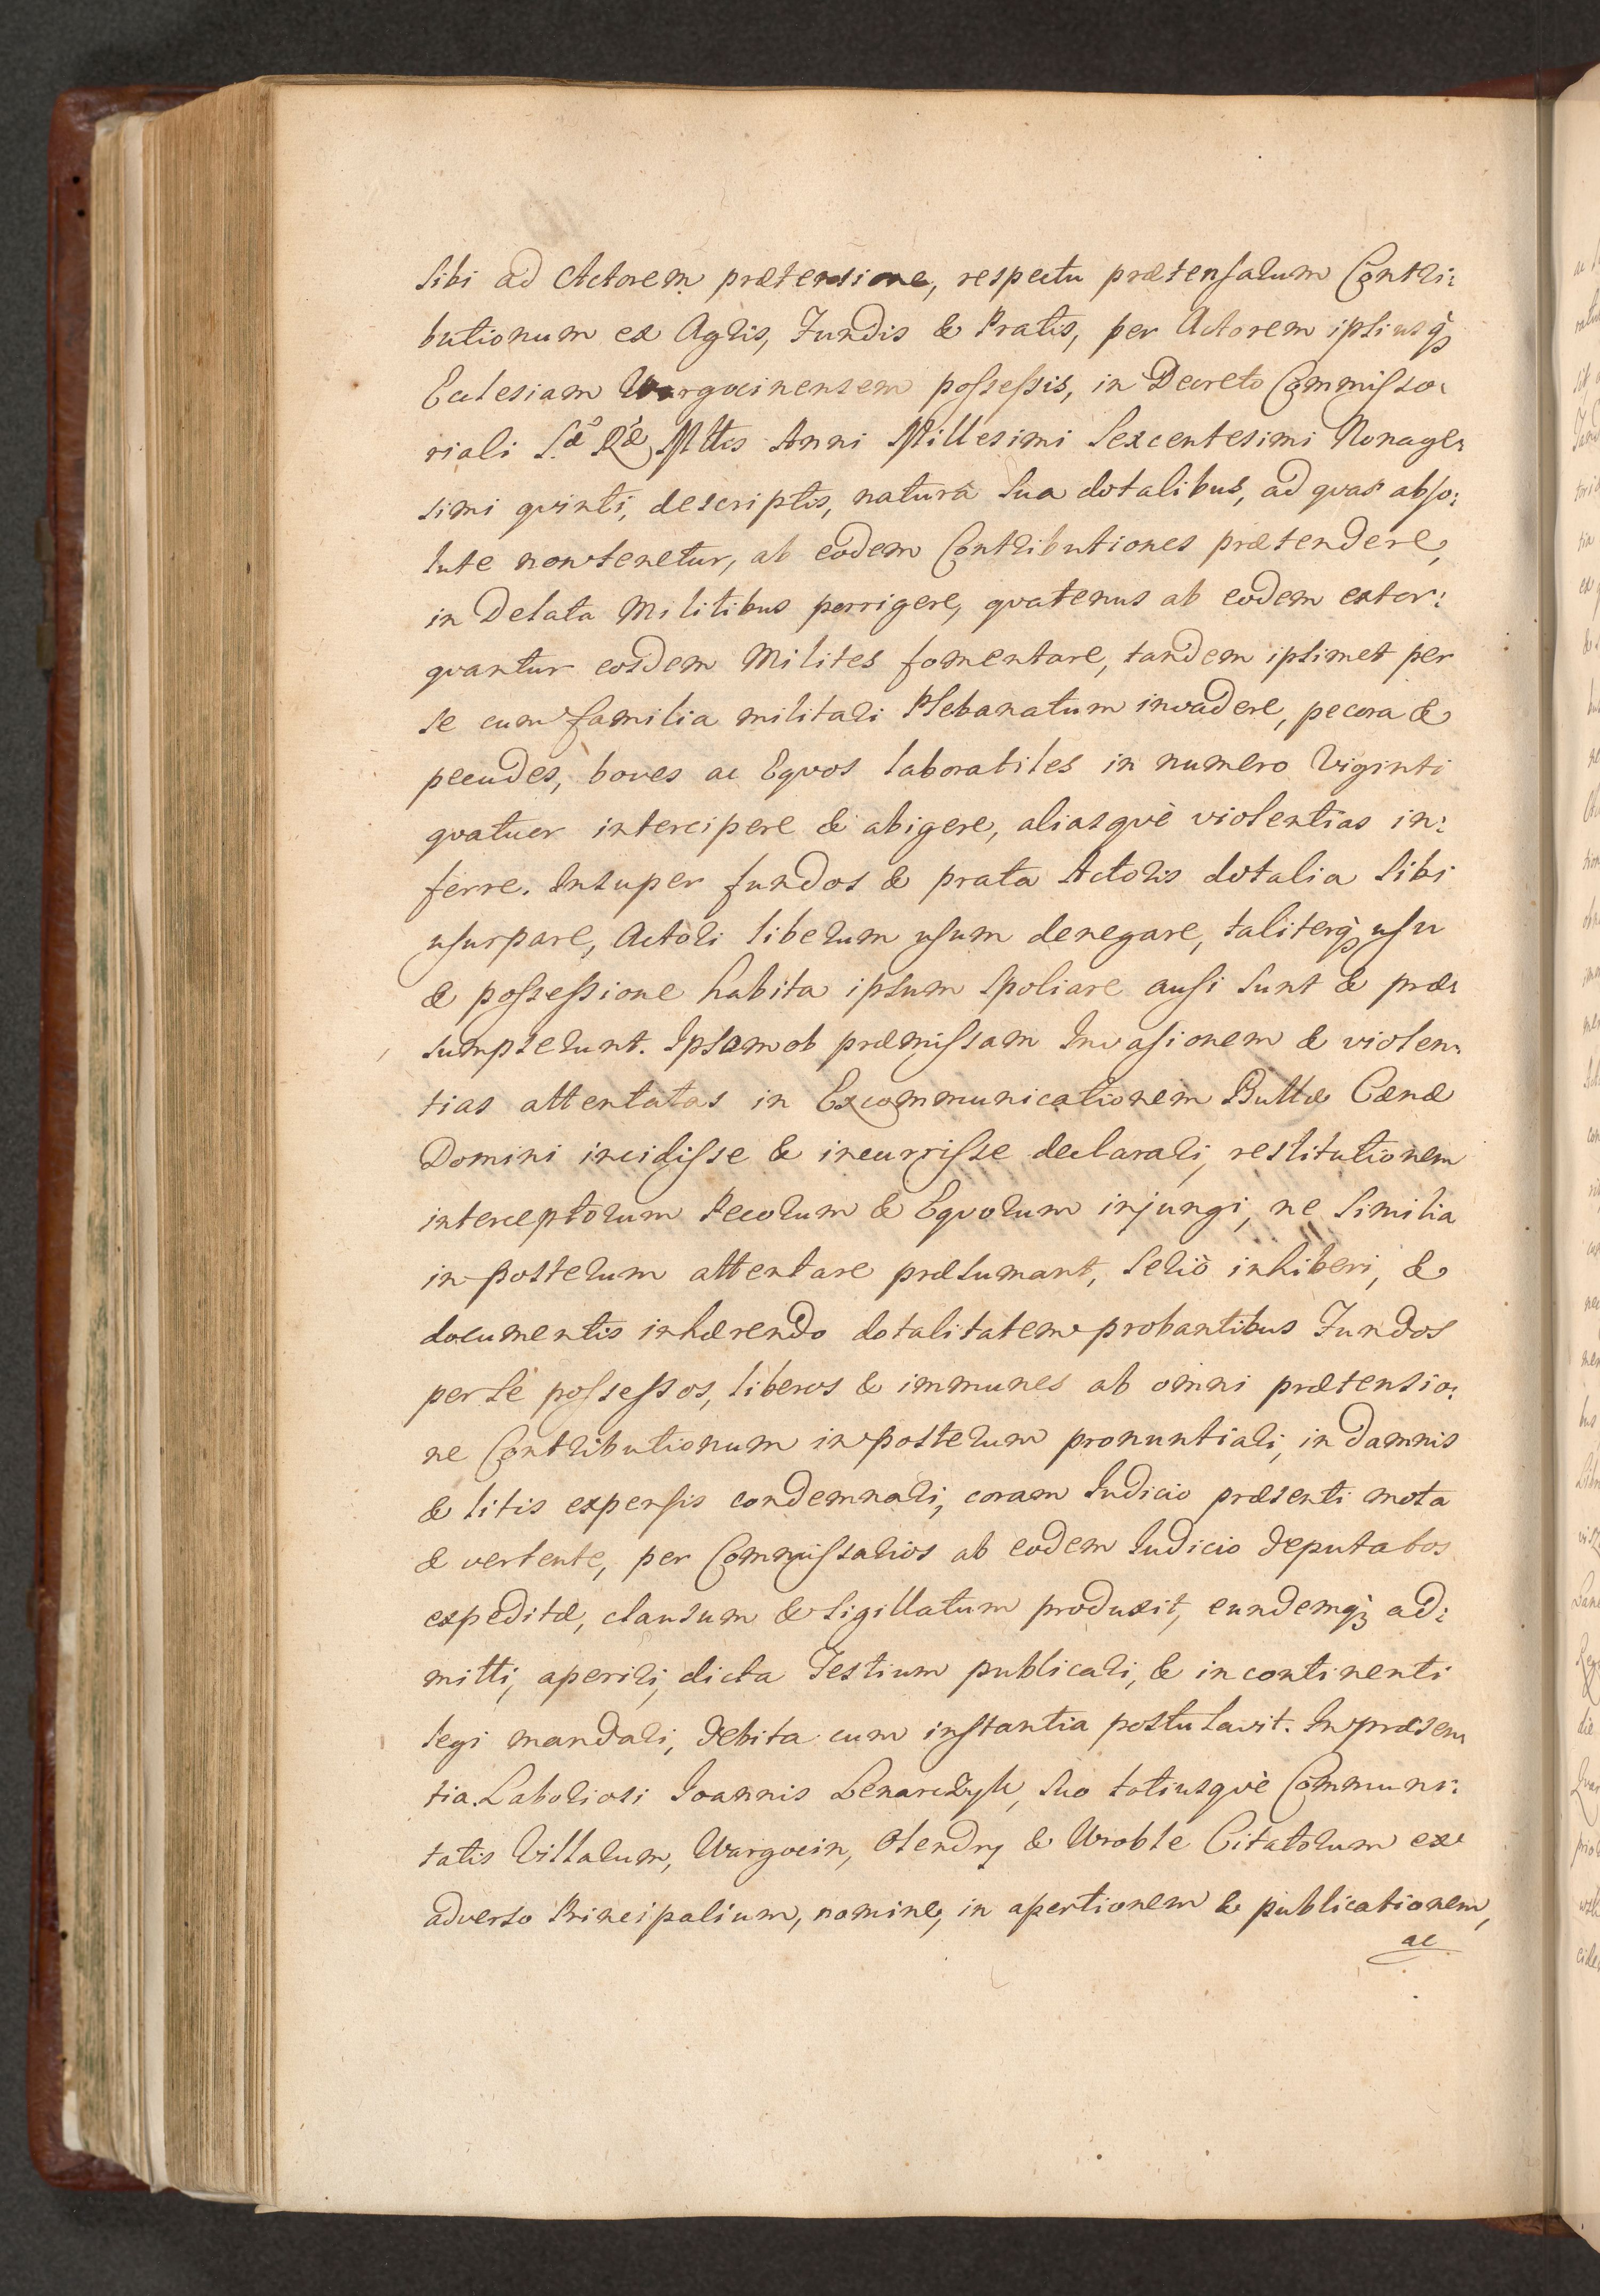 sibi ad Actorem prætensione, respectu prætensarum Contri:
butionum ex Agris, Fundis & Pratis, per Actorem ipsiusq́ꝫ
Ecclesiam Wargocinensem possessis, in Decreto Commisso:
riali S.æ Ræ Mttis Anni Millesimi Sexcentesimi Nonage:
simi qvinti, descriptis, naturâ sua dotalibus, ad qvas abso:
lute non tenetur, ab eodem Contributiones prætendere,
in Delata Militibus porrigere, qvatenus ab eodem extor:
qvantur eosdem Milites fomentare, tandem ipsimet per
se cum familia militari Plebanatum invadere, pecora &
pecudes, boves ac Eqvos laboratiles in numero Viginti
qvatuor intercipere & abigere, aliasqvè violentias in:
ferre. Insuper fundos & prata Actoris dotalia sibi
usurpare, Actori liberum usum denegare, taliterq́ꝫ usu
& possessione habita ipsum spoliare ausi sunt & præ:
sumpserunt. Ipsam ob præmissam Invasionem & violen:
tias attentatas in Excommunicationem Bullæ Cænæ
Domini incidisse & incurrisse declarari, restitutionem
interceptorum Pecorum & Eqvorum injungi, ne similia
in posterum attentare præsumant, seriò inhiberi, &
documentis inhærendo dotalitatem probantibus Fundos
per se possessos, liberos & immunes ab omni prætensio:
ne Contributionum in posterum pronuntiari, in damnis
& litis expensis condemnari, coram Iudicio præsenti mota
& vertente, per Commissarios ab eodem Iudicio deputatos
expeditæ, clausum & sigillatum produxit, eundemq́ꝫ ad:
mitti, aperiri, dicta Testium publicari, & in continenti
legi mandari, debita cum instantia postulavit. In præsen:
tia. Laboriosi Ioannis Lenarczyk, suo totiusqvè Communi:
tatis Villarum, Wargocin, Olendry & Wroble Citatorum ex
adverso Principalium, nomine, in apertionem & publicationem,
ac